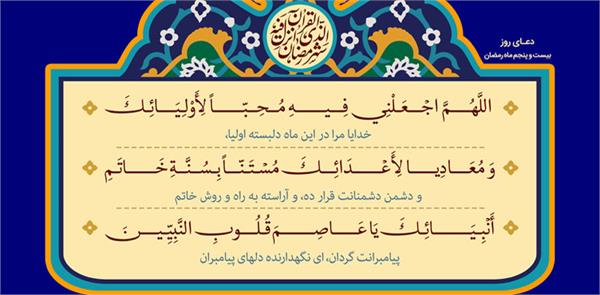 شهر رمضان الذی انزل فیه القرآن
دعـای روز
بیست و پنجم ماه رمضان
اللَّهُمَّ اجْعَلْنِي فِيهِ مُحِبّاً لِأَوْلِيَائِكَ
خدایا مرا در این ماه دلبسته اولیا،
وَ مُعَادِيا لِأَعْدَائِكَ مُسْتَنّاً بِسُنَّةِ خَاتَمِ
و دشمن دشمنانت قرار ده، و آراسته به راه و روش خاتم
أَنْبِيَائِكَ يَا عَاصِمَ قُلُوبِ النَّبِيِّينَ
پیامبرانت گردان، ای نگهدارنده دلهای پیامبران